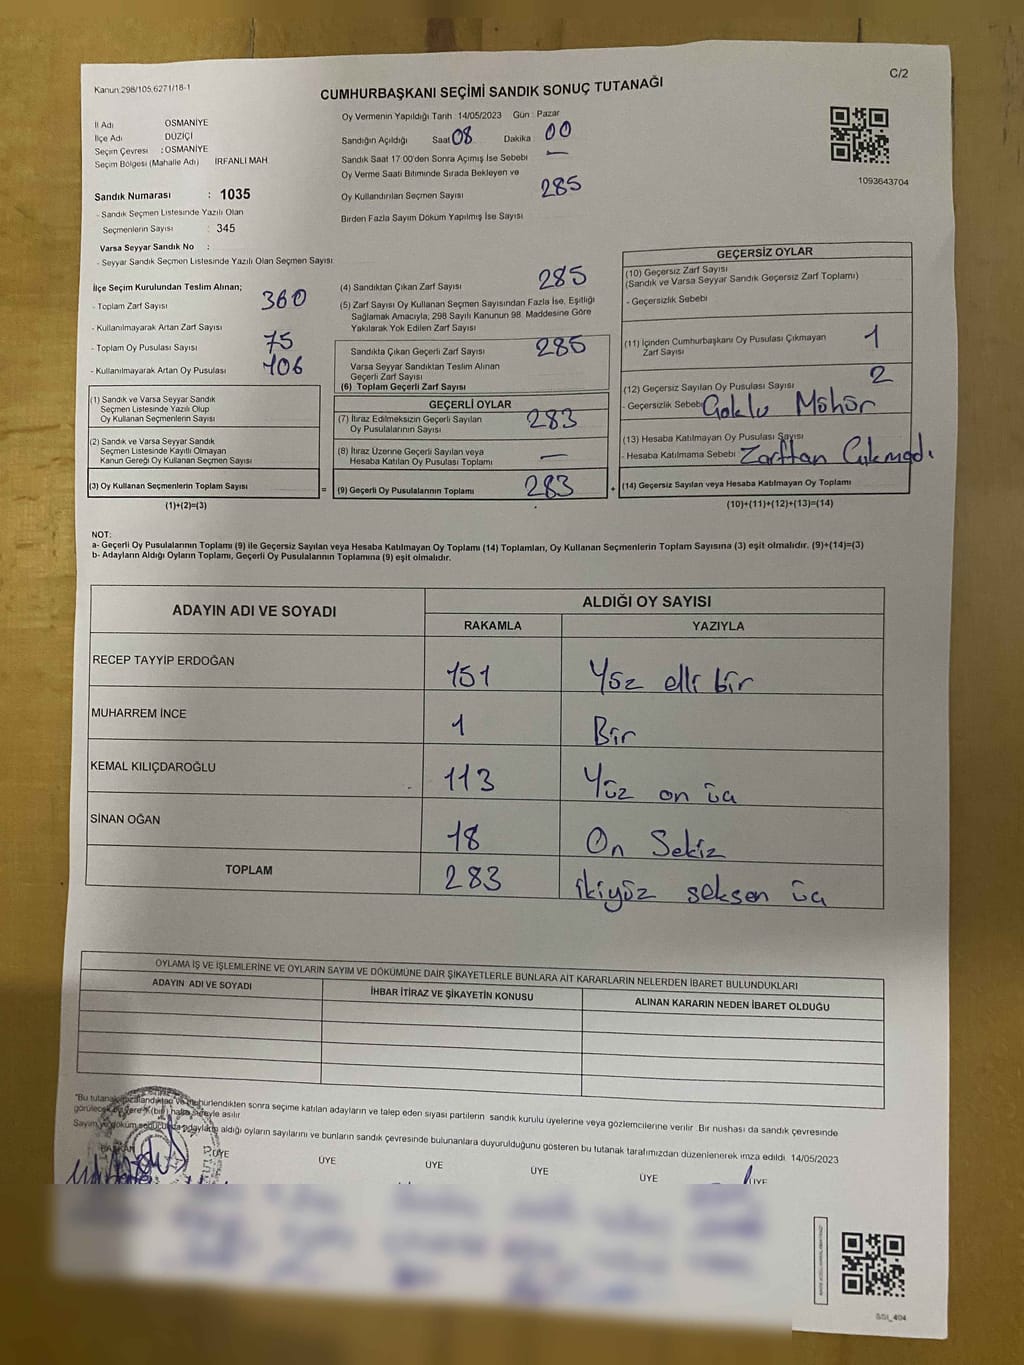 Kanun 298/105,6271/18-1
CUMHURBAŞKANI SEÇİMİ SANDIK SONUÇ TUTANAĞI
C/2
İl Adı OSMANİYE
İlçe Adı DÜZİÇİ
Seçim Çevresi : OSMANİYE
Seçim Bölgesi (Mahalle Adı) İRFANLI MAH
Sandık Numarası : 1035
- Sandık Seçmen Listesinde Yazılı Olan
Seçmenlerin Sayısı : 345
Varsa Seyyar Sandık No :
- Seyyar Sandık Seçmen Listesinde Yazılı Olan Seçmen Sayısı:
Oy Vermenin Yapıldığı Tarih : 14/05/2023 Gün : Pazar
Sandığın Açıldığı Saat 08 Dakika : 00
Sandık Saat 17.00'den Sonra Açımış İse Sebebi —
Oy Verme Saati Bitiminde Sırada Bekleyen ve
Oy Kullandırılan Seçmen Sayısı 285
Birden Fazla Sayım Döküm Yapılmış İse Sayısı
1093643704
İlçe Seçim Kurulundan Teslim Alınan;
- Toplam Zarf Sayısı 360
- Kullanılmayarak Artan Zarf Sayısı 75
- Toplam Oy Pusulası Sayısı
- Kullanılmayarak Artan Oy Pusulası 106
(1) Sandık ve Varsa Seyyar Sandık
Seçmen Listesinde Yazılı Olup
Oy Kullanan Seçmenlerin Sayısı
(2) Sandık ve Varsa Seyyar Sandık
Seçmen Listesinde Kayıtlı Olmayan
Kanun Gereği Oy Kullanan Seçmen Sayısı
(3) Oy Kullanan Seçmenlerin Toplam Sayısı =
(1)+(2)=(3)
(4) Sandıktan Çıkan Zarf Sayısı 285
(5) Zarf Sayısı Oy Kullanan Seçmen Sayısından Fazla İse, Eşitliği
Sağlamak Amacıyla; 298 Sayılı Kanunun 98. Maddesine Göre
Yakılarak Yok Edilen Zarf Sayısı
Sandıkta Çıkan Geçerli Zarf Sayısı 285
Varsa Seyyar Sandıktan Teslim Alınan
Geçerli Zarf Sayısı
(6) Toplam Geçerli Zarf Sayısı
GEÇERLİ OYLAR
(7) İtiraz Edilmeksizin Geçerli Sayılan
Oy Pusulalarının Sayısı 283
(8) İtiraz Üzerine Geçerli Sayılan veya
Hesaba Katılan Oy Pusulası Toplamı —
(9) Geçerli Oy Pusulalarının Toplamı 283 +
GEÇERSİZ OYLAR
(10) Geçersiz Zarf Sayısı
(Sandık ve Varsa Seyyar Sandık Geçersiz Zarf Toplamı)
- Geçersizlik Sebebi
(11) İçinden Cumhurbaşkanı Oy Pusulası Çıkmayan
Zarf Sayısı 1
(12) Geçersiz Sayılan Oy Pusulası Sayısı 2
- Geçersizlik Sebebi Çoklu Mühür
(13) Hesaba Katılmayan Oy Pusulası Sayısı
- Hesaba Katılmama Sebebi Zarftan Çıkmadı
(14) Geçersiz Sayılan veya Hesaba Katılmayan Oy Toplamı
(10)+(11)+(12)+(13)=(14)
NOT:
a- Geçerli Oy Pusulalarının Toplamı (9) ile Geçersiz Sayılan veya Hesaba Katılmayan Oy Toplamı (14) Toplamları, Oy Kullanan Seçmenlerin Toplam Sayısına (3) eşit olmalıdır. (9)+(14)=(3)
b- Adayların Aldığı Oyların Toplamı, Geçerli Oy Pusulalarının Toplamına (9) eşit olmalıdır.
ADAYIN ADI VE SOYADI
ALDIĞI OY SAYISI
RAKAMLA YAZIYLA
RECEP TAYYİP ERDOĞAN 151 Yüz elli bir
MUHARREM İNCE 1 Bir
KEMAL KILIÇDAROĞLU 113 Yüz on üç
SİNAN OĞAN 18 On Sekiz
TOPLAM 283 ikiyüz seksen üç
OYLAMA İŞ VE İŞLEMLERİNE VE OYLARIN SAYIM VE DÖKÜMÜNE DAİR ŞİKAYETLERLE BUNLARA AİT KARARLARIN NELERDEN İBARET BULUNDUKLARI
ADAYIN ADI VE SOYADI İHBAR İTİRAZ VE ŞİKAYETİN KONUSU ALINAN KARARIN NEDEN İBARET OLDUĞU
"Bu tutanak ve mühürlendikten sonra seçime katılan adayların ve talep eden siyasi partilerin sandık kurulu üyelerine veya gözlemcilerine verilir. Bir nushası da sandık çevresinde
görülecek bir yere (bir) hafta süreyle asılır.
Sayım ve döküm adayların aldığı oyların sayılarını ve bunların sandık çevresinde bulunanlara duyurulduğunu gösteren bu tutanak tarafımızdan düzenlenerek imza edildi. 14/05/2023
BAŞKAN ÜYE ÜYE ÜYE ÜYE ÜYE ÜYE